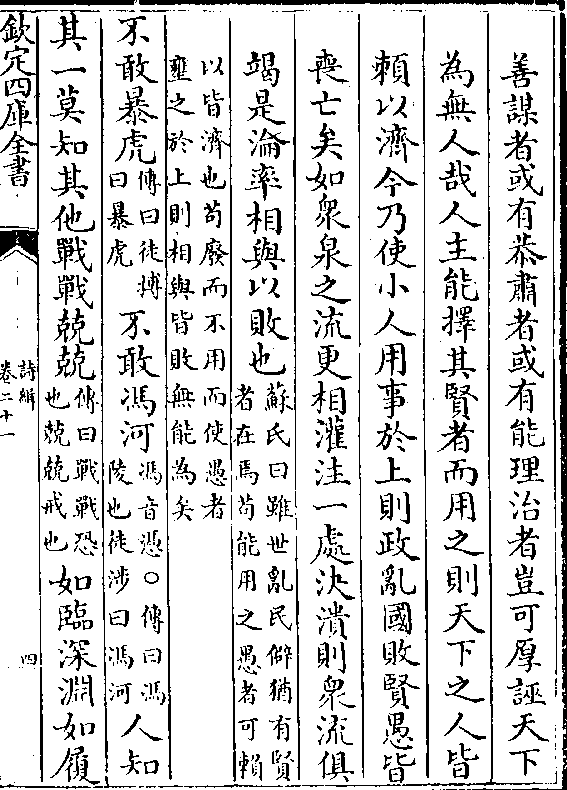 善謀者或有恭肅者或有能理治者豈可厚誣天下
為無人哉人主能擇其賢者而用之則天下之人皆
頼以濟今乃使小人用事於上則政亂國敗賢愚皆
喪亡矣如衆泉之流更相灌注一處決潰則衆流俱
竭是淪率相與以敗也蘇氏曰雖世亂民僻猶有賢
者在焉苟能用之愚者可賴
以皆濟也苟廢而不用而使愚者
壅之於上則相與皆敗無能為矣
不敢暴虎傳曰徒搏
曰暴虎
不敢馮河馮音憑○傳曰馮
陵也徒涉曰馮河
人知
其一莫知其他戰戰兢兢傳曰戰戰恐
也兢兢戒也
如臨深淵如履
欽定四庫全書
詩緝
卷二十一
四